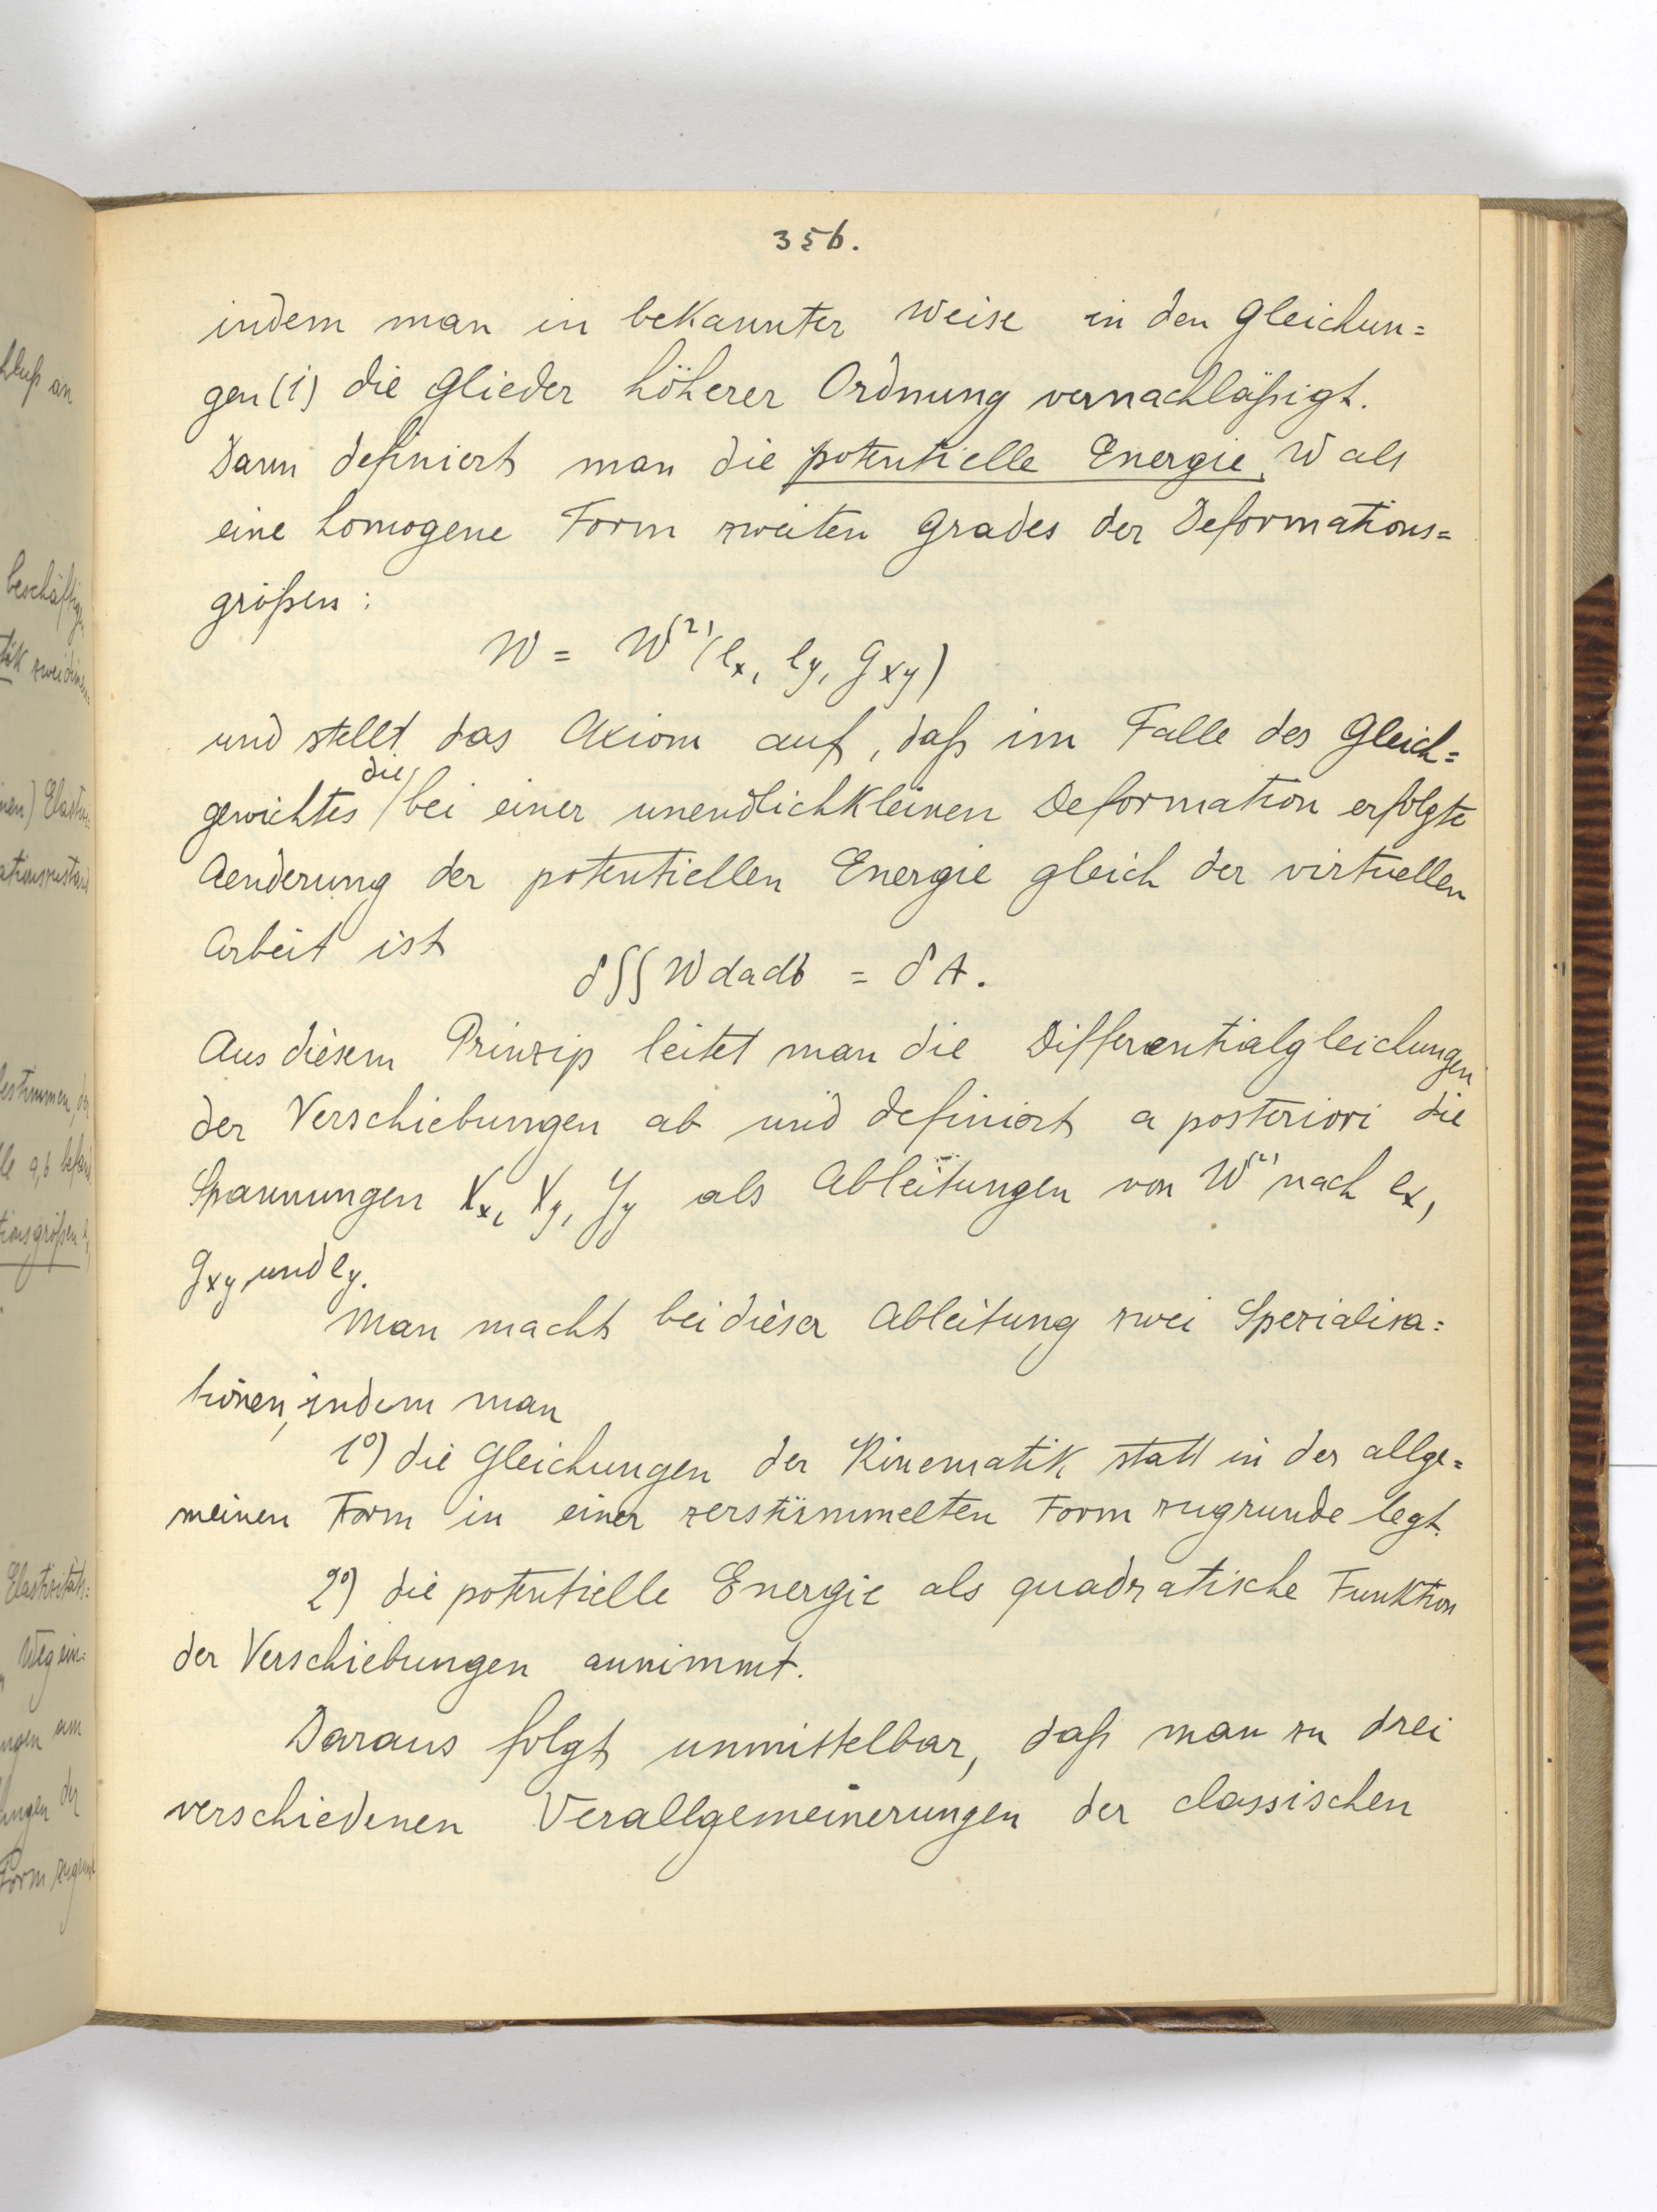 356.
indem man in bekannter Weise in den Gleichun=
gen (1) die Glieder höherer Ordnung vernachläßigt.
Dann definiert man die potentielle Energie W als
eine homogene Form zweiten Grades der Deformations=
größen:
W = W⁽²⁾(eₓ, e_y, g_xy)
und stellt das Axiom auf, daß im Falle des Gleich=
gewichtes die bei einer unendlichkleinen Deformation erfolgte
Aenderung der potentiellen Energie gleich der virtuellen
Arbeit ist
δ∫∫Wdadb = δA.
Aus diesem Prinzip leitet man die Differentialgleichungen
der Verschiebungen ab und definiert a posteriori die
Spannungen Xₓ, X_y, Y_y als Ableitungen von W⁽²⁾ nach eₓ,
g_xy und e_y.
Man macht bei dieser Ableitung zwei Spezialisa=
tionen, indem man
1⁰) die Gleichungen der Kinematik statt in der allge=
meinen Form in einer zerstümmelten Form zugrunde legt.
2⁰) die potentielle Energie als quadratische Funktion
der Verschiebungen annimmt.
Daraus folgt unmittelbar, daß man zu drei
verschiedenen Verallgemeinerungen der classischen